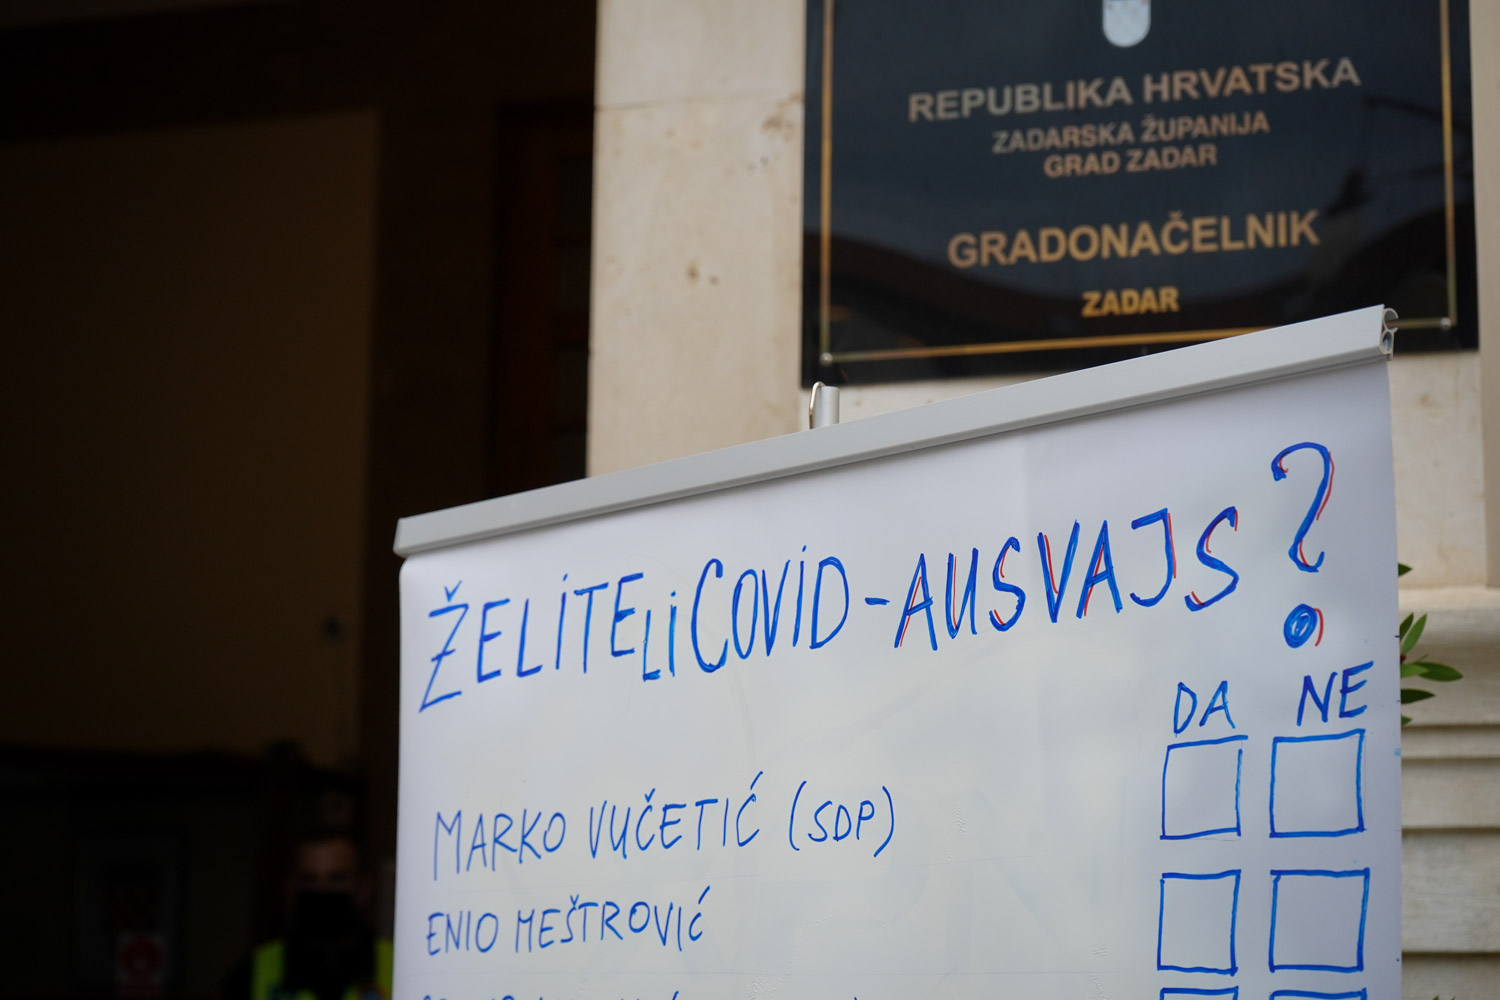 REPUBLIKA HRVATSKA
ZADARSKA ŽUPANIJA
GRAD ZADAR
GRADONAČELNIK
ZADAR
ŽELITE LI COVID-AUSVAJS?
DA NE
MARKO VUČETIĆ (SDP)
ENIO MEŠTROVIĆ